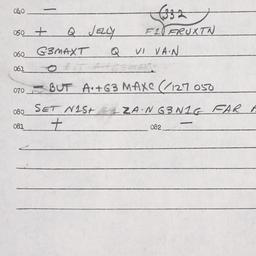 040 —
332
050 + Q JELLY F1 FRUXTN
060 G3MAXT Q VI VA·N
061 O
070 — BUT A·+G3 MAXC (/127 050
080 SET N1S+ ZA·N G3N1G FAR
081 + 082 —